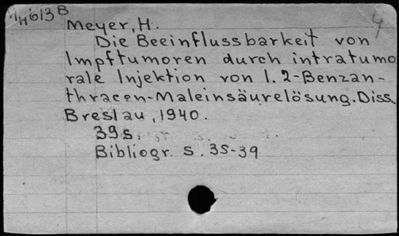 Meyer, H.
Die Beeinflussbarkeit von
Impftumoren durch intratumo
rale Injektion von 1.2-Benzan-
thracen-Maleinsäurelösung. Diss.
Breslau, 1940.
39s.
Bibliogr. S. 35-39